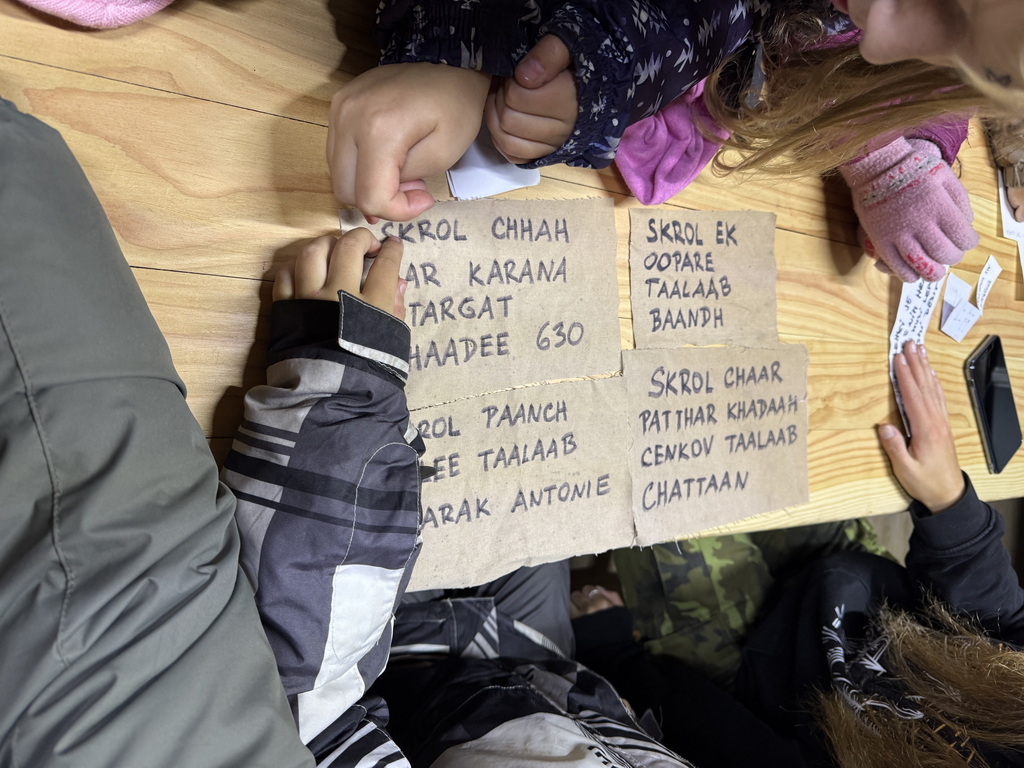 SKROL CHHAH
AR KARANA
TARGAT
HAADEE 630
SKROL EK
OOPARE
TAALAAB
BAANDH
ROL PAANCH
LEE TAALAAB
ARAK ANTONIE
SKROL CHAAR
PATTHAR KHADAAH
CENKOV TAALAAB
CHATTAAN